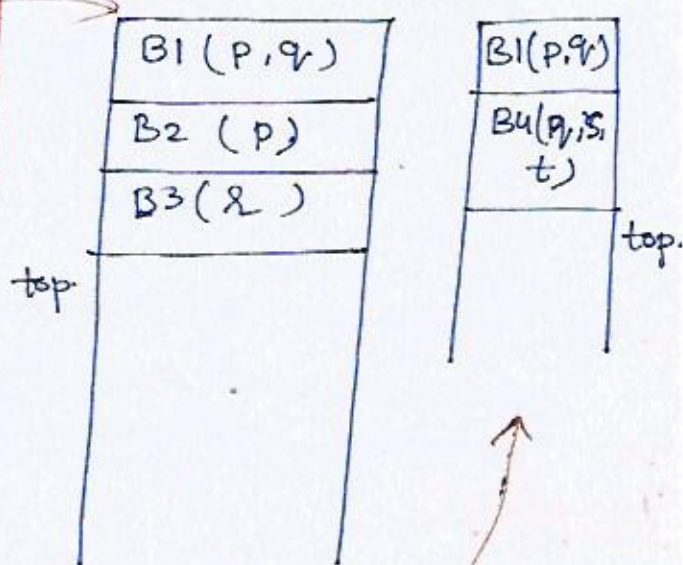 B1 (p,q)
B2 (p)
B3 (r)
top.
B1(p,q)
B4(q,s,
t)
top.